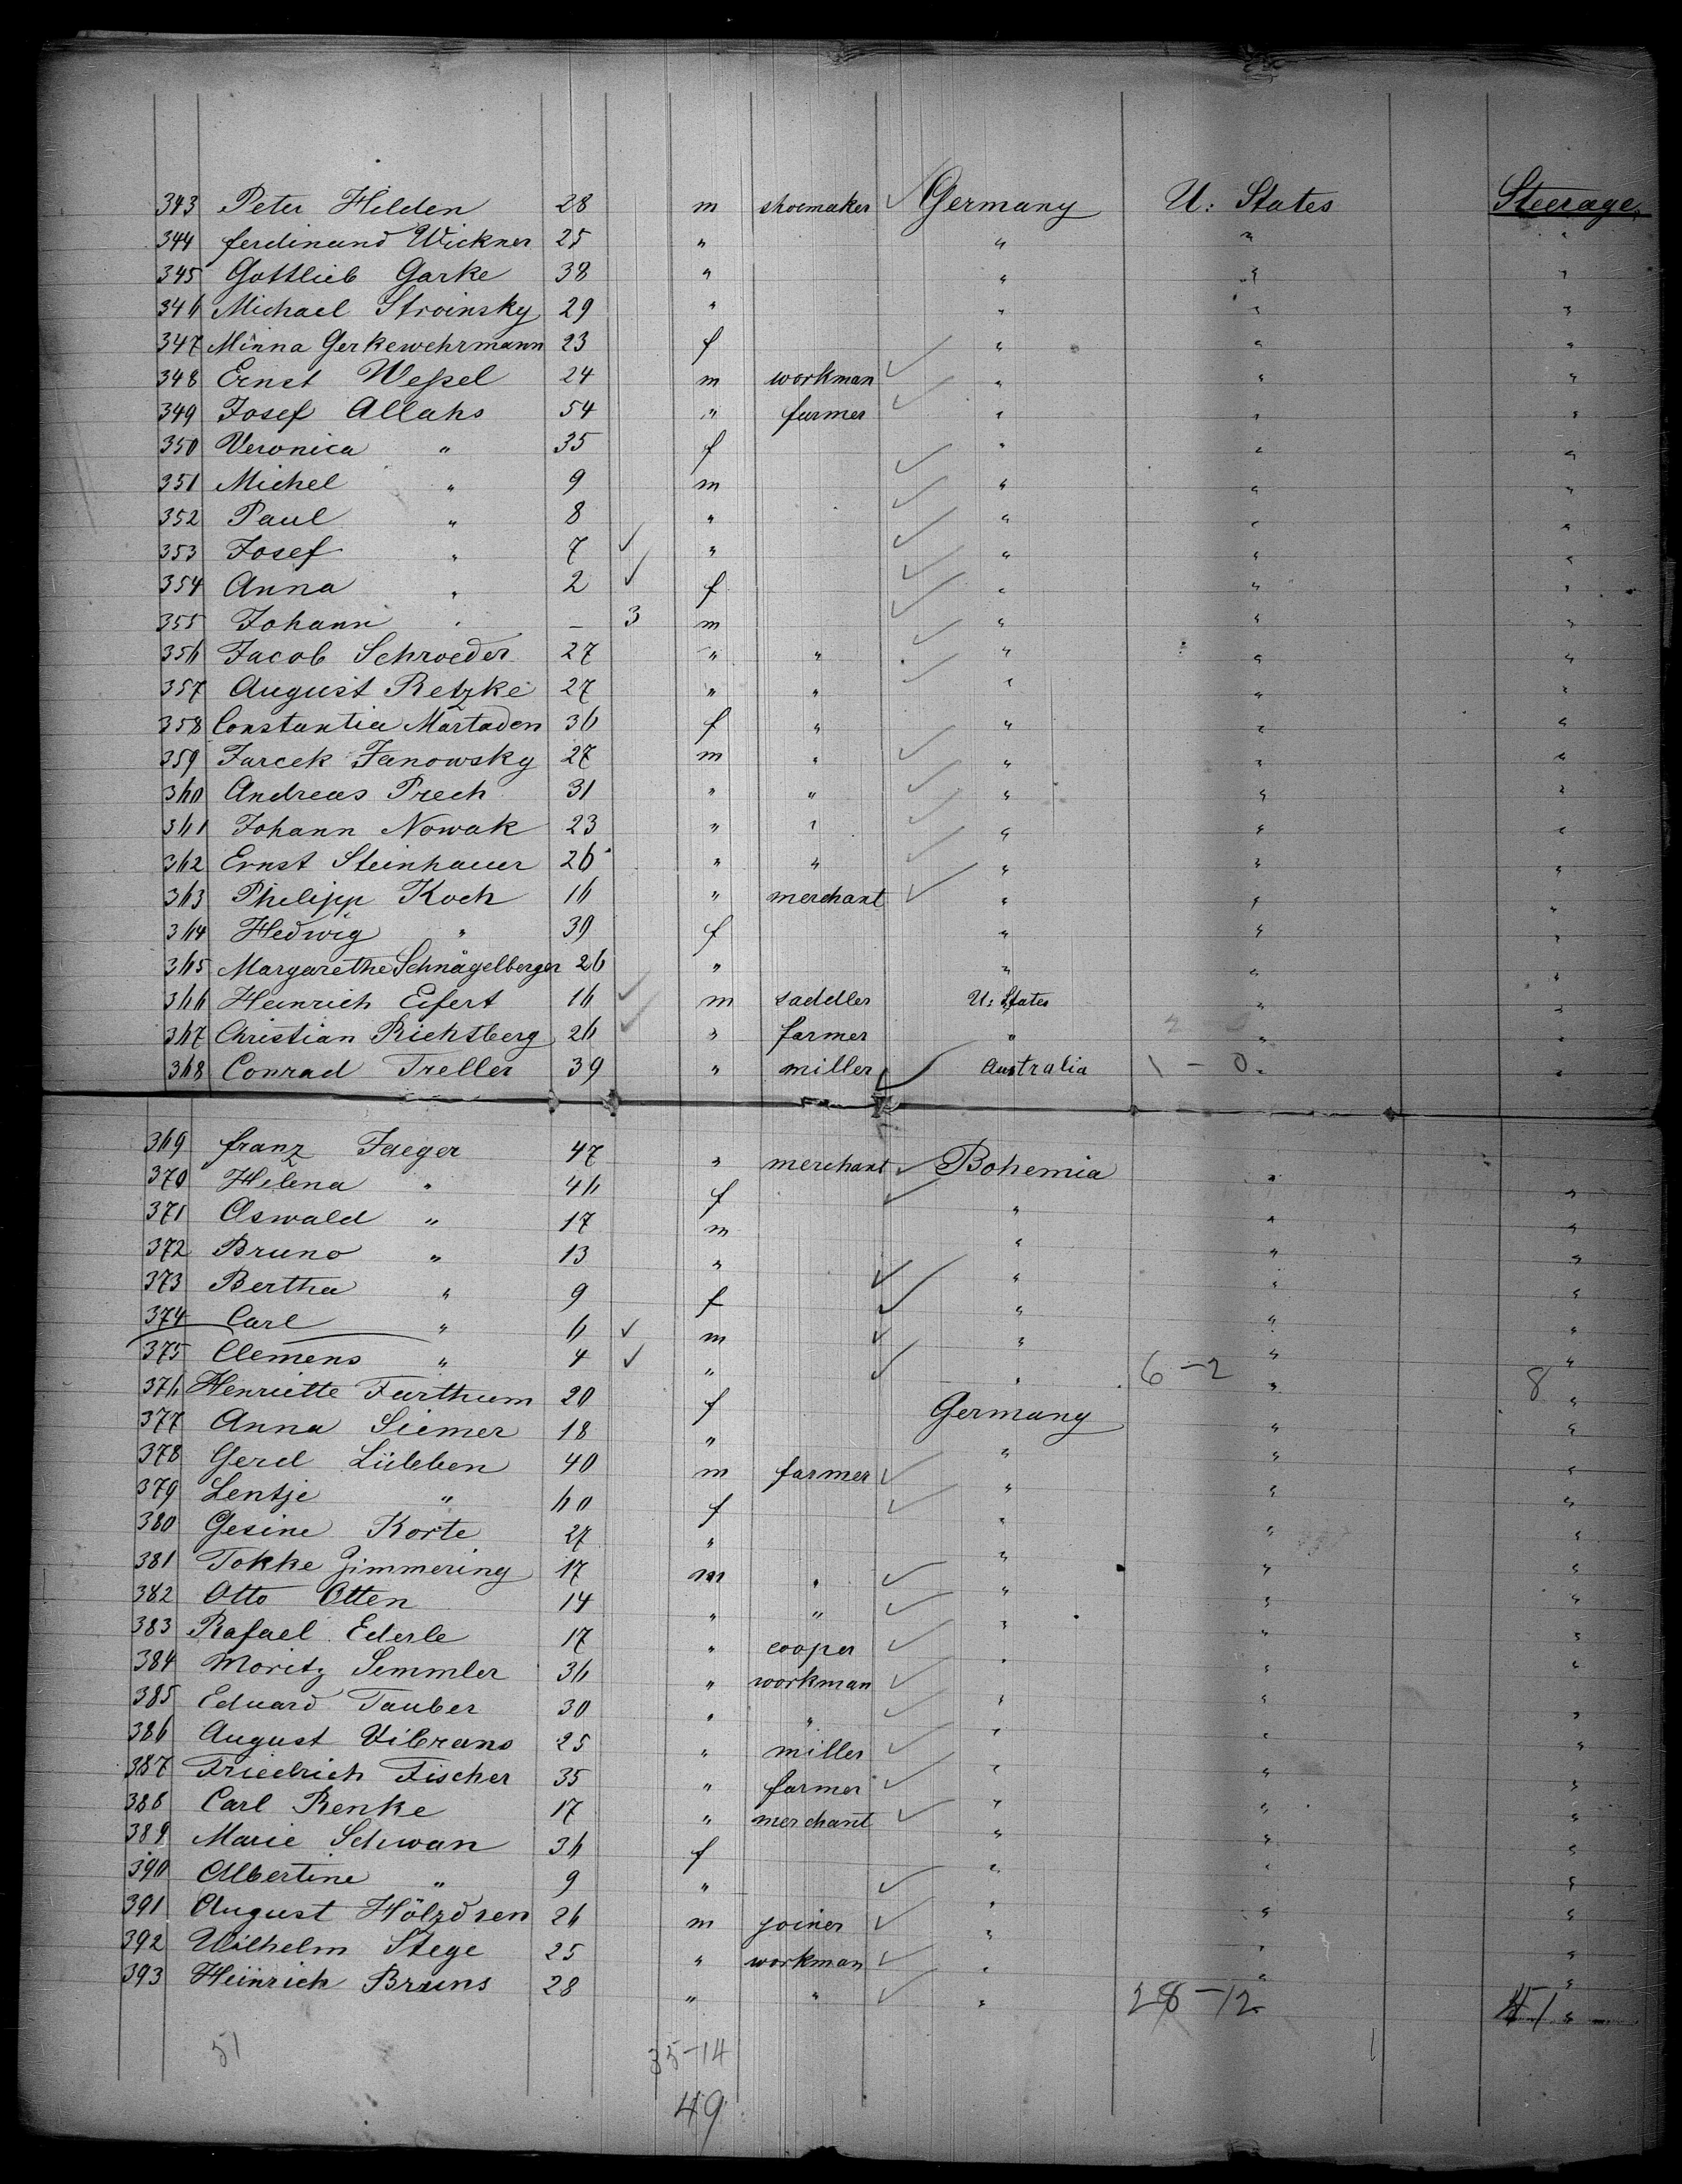 343 Peter Hilden 28 m shoemaker ✓ Germany U: States Steerage
344 Ferdinand Wickner 25 " " " "
345 Gottlieb Garke 38 " " " "
346 Michael Stroinsky 29 " " " "
347 Minna Gerkewehrmann 23 f ✓ " " "
348 Ernst Weßel 24 m workman ✓ " " "
349 Josef Allahs 54 " farmer ✓ " " "
350 Veronica " 35 f ✓ " " "
351 Michel " 9 m ✓ " " "
352 Paul " 8 " ✓ " " "
353 Josef " 7 ✓ " ✓ " " "
354 Anna " 2 ✓ f ✓ " " "
355 Johann " — 3 m ✓ " " "
356 Jacob Schroeder 27 " " ✓ " " "
357 August Retzke 27 " " ✓ " " "
358 Constantia Martaden 36 f " ✓ " " "
359 Jarcek Janowsky 27 m " ✓ " " "
360 Andreas Prech 31 " " ✓ " " "
361 Johann Nowak 23 " " ✓ " " "
362 Ernst Steinhauer 26 " " ✓ " " "
363 Philipp Koch 16 " merchant ✓ " " "
364 Hedwig " 39 f " " "
365 Margarethe Schnägelberger 26 " " " "
366 Heinrich Eifert 16 ✓ m saddler U: States " "
367 Christian Richtberg 26 ✓ " farmer " " "
368 Conrad Treller 39 " miller ✓ Australia 1 - 0 " "
369 Franz Jaeger 47 " merchant ✓ Bohemia " "
370 Helena " 46 f ✓ " " "
371 Oswald " 17 m " " "
372 Bruno " 13 " ✓ " " "
373 Bertha " 9 f ✓ " " "
374 Carl " 6 ✓ m ✓ " " "
375 Clemens " 4 ✓ " ✓ " 6 - 2 " 8 "
376 Henriette Furthum 20 f Germany " "
377 Anna Siemer 18 " " " "
378 Gerd Lübben 40 m farmer ✓ " " "
379 Lentje " 60 f ✓ " " "
380 Gesine Korte 27 " " " "
381 Tokke Zimmering 17 m " ✓ " " "
382 Otto Otten 14 " " ✓ " " "
383 Rafael Ederle 17 " cooper ✓ " " "
384 Moritz Semmler 36 " workman ✓ " " "
385 Eduard Tauber 30 " " ✓ " " "
386 August Vibrans 25 " miller ✓ " " "
387 Friedrich Fischer 35 " farmer ✓ " " "
388 Carl Renke 17 " merchant ✓ " " "
389 Marie Schwan 36 f " " "
390 Albertine " 9 " ✓ " " "
391 August Hölzdren 26 m joiner ✓ " " "
392 Wilhelm Stege 25 " workman ✓ " " "
393 Heinrich Bruns 28 " " ✓ " 28 - 12 " 41 "
51 35 - 14
49